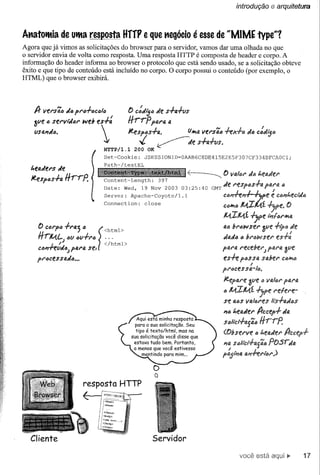 introdução o arquitetura
Anatomia de uma resposta HTTP e que negócio é esse de "MIME type"?
Agora que já vimos as solicitações do browser para o servidor, vamos dar uma olhada no que
o servidor envia de volta como resposta. Uma resposta HTTP é composta de header e corpo. A
informação do header informa ao browser o protocolo que está sendo usado, se a solicitação obteve
êxito e que tipo de conteúdo está incluído no corpo. O corpo possui o conteúdo (por exemplo, o
HTML) que o browser exibirá.
A versão do protocolo
que o servidor web está
usando.
O código de status
HTTP para a
Resposta.
Uma versão texto do código
de status.
headers de
Resposta HTTP.
HTTP/1.1 200 OK
Set-Cookie: JSESSIONID=0AAB6C8DE415E2E5F307CF334BFCA0C1;
Path=/testEL
Content-Type: text/html
Content-Length: 397
Date: Wed, 19 Nov 2003 03:25:40 GMT
Server: Apache-Coyote/1.1
Connection: close
<html>
...
</html>
O corpo traz o
HTML, ou outro
conteúdo, para ser
processado...
O valor do header
de resposta para o
content-type é conhecido
como MIME type. O
MIME type informa
ao browser que tipo de
dado o browser está
para receber, para que
ele possa saber como
processá-lo.
Repare que o valor para
o MIME type refere-
se aos valores listados
no header Accept da
solicitação HTTP.
(Observe o header Accept
na solicitação POST da
página anterior.)
Aqui está minha resposta
para a sua solicitação. Seu
tipo é texto/html, mas na
sua solicitação você disse que
estava tudo bem. Portanto,
a menos que você estivesse
mentindo para mim...
Web
Browser
resposta HTTP
Cliente
Servidor
você está aqui
17